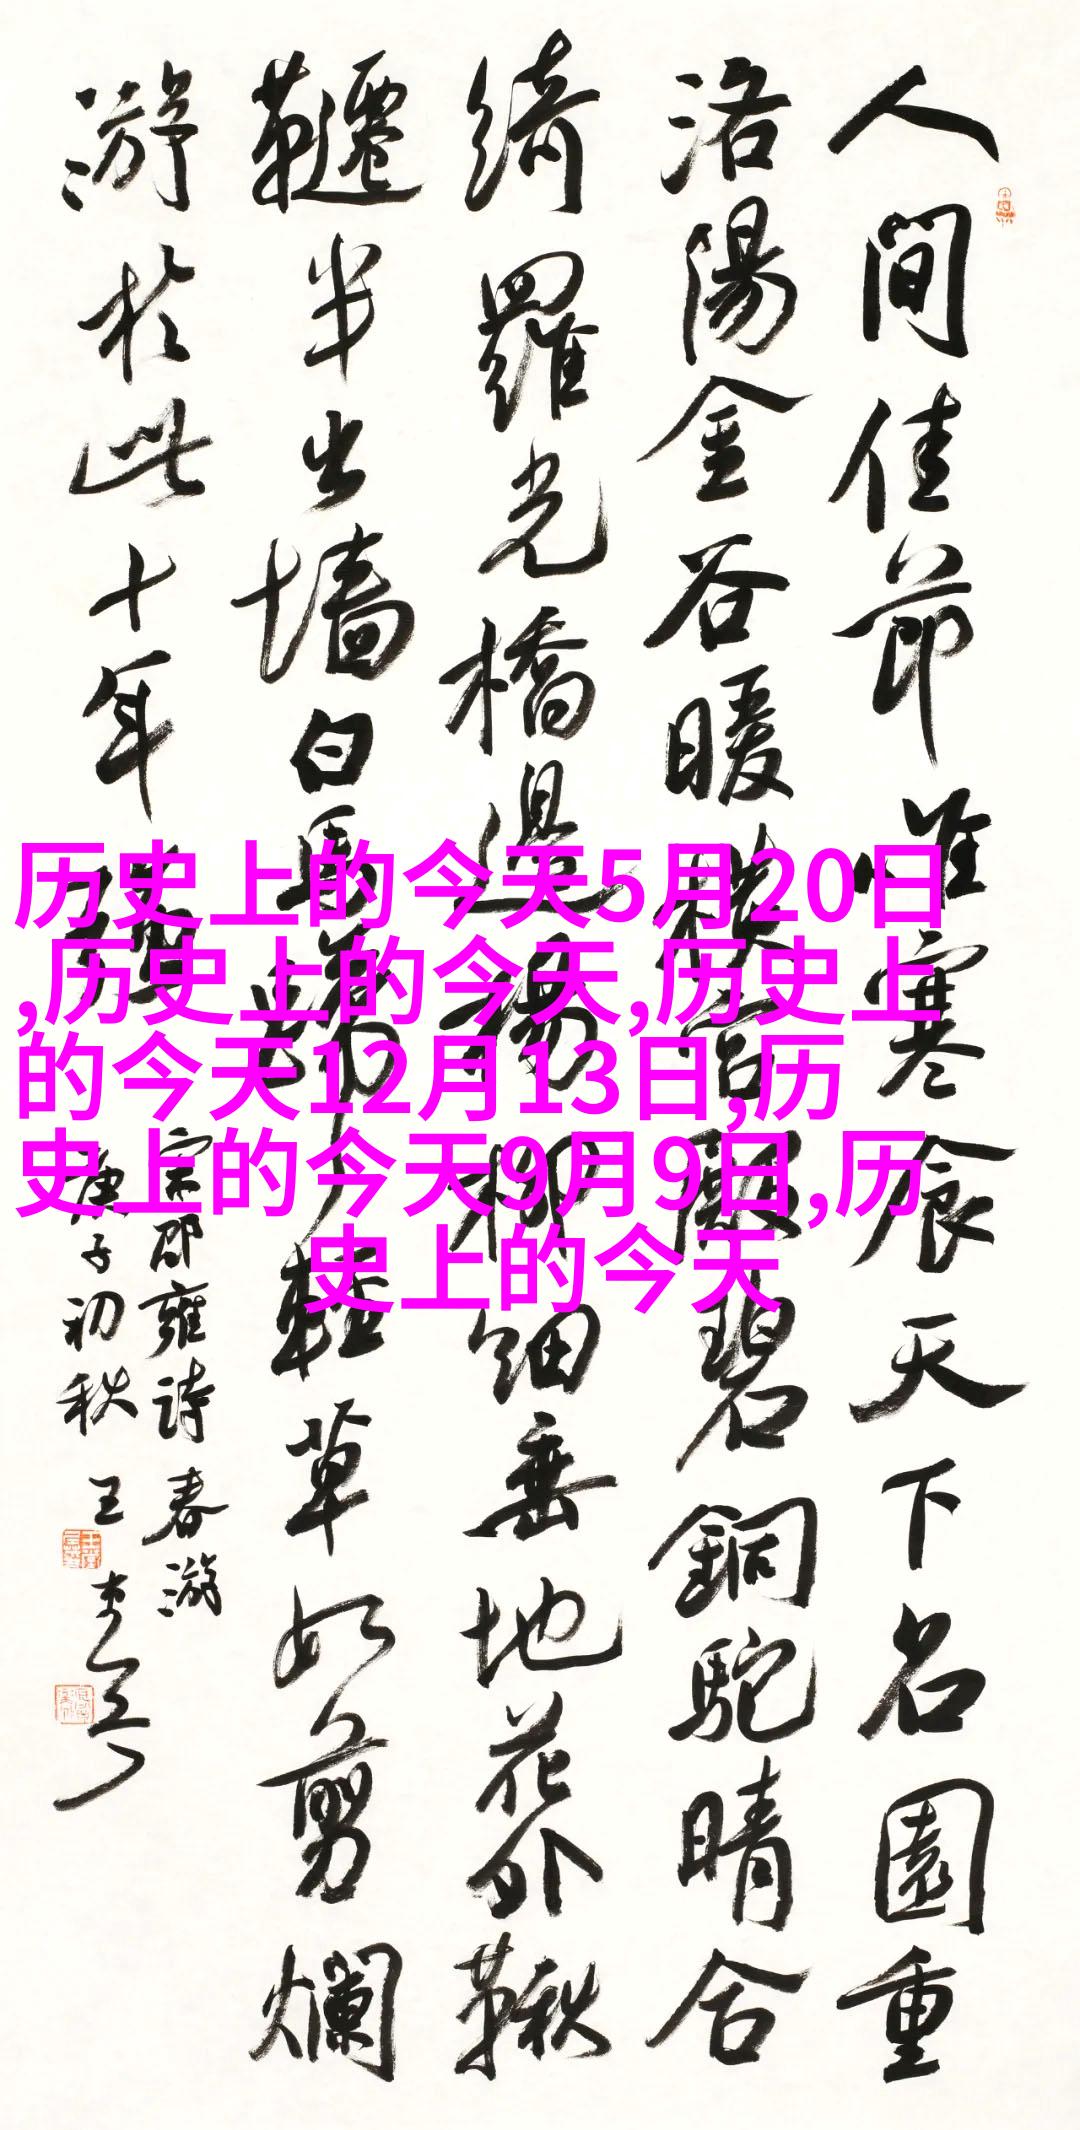 人間佳節唯寒食天下名園重
洛陽金谷暖橫宮殿碧銅駝晴合
綺羅光橋邊楊柳細垂地花外鞦
韆半出墻白馬蹄輕草如剪爛
游於此十年強
宋邵雍詩春游
庚子初秋王
历史上的今天5月20日
,历史上的今天,历史上
的今天12月13日,历
史上的今天9月9日,历
史上的今天